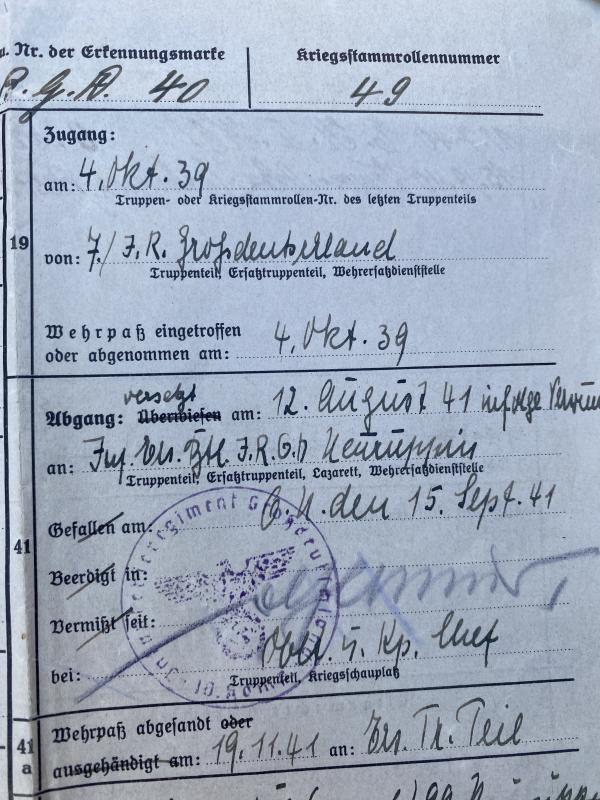 Nr. der Erkennungsmarke
Kriegsstammrollennummer
I. R. G. D. 40
49
Zugang:
am: 4. Okt. 39
Truppen- oder Kriegsstammrollen-Nr. des letzten Truppenteils
19
von: 7./ J. R. Großdeutschland
Truppenteil, Ersatztruppenteil, Wehrersatzdienststelle
Wehrpaß eingetroffen
oder abgenommen am: 4. Okt. 39
versetzt
Abgang: Überwiesen am: 12. August 41 infolge
an: Inf. Ers. Btl. J.R.G.D. Neuruppin
Truppenteil, Ersatztruppenteil, Lazarett, Wehrersatzdienststelle
O.U. den 15. Sept. 41
Gefallen am:
41
Beerdigt in:
Vermißt seit:
Oblt. u. Kp. Chef
bei:
Truppenteil, Kriegsschauplatz
Infanterieregiment Großdeutschland
10. Komp.
Wehrpaß abgesandt oder
41
a
ausgehändigt am: 19.11.41 an: Ers. Tr. Teil